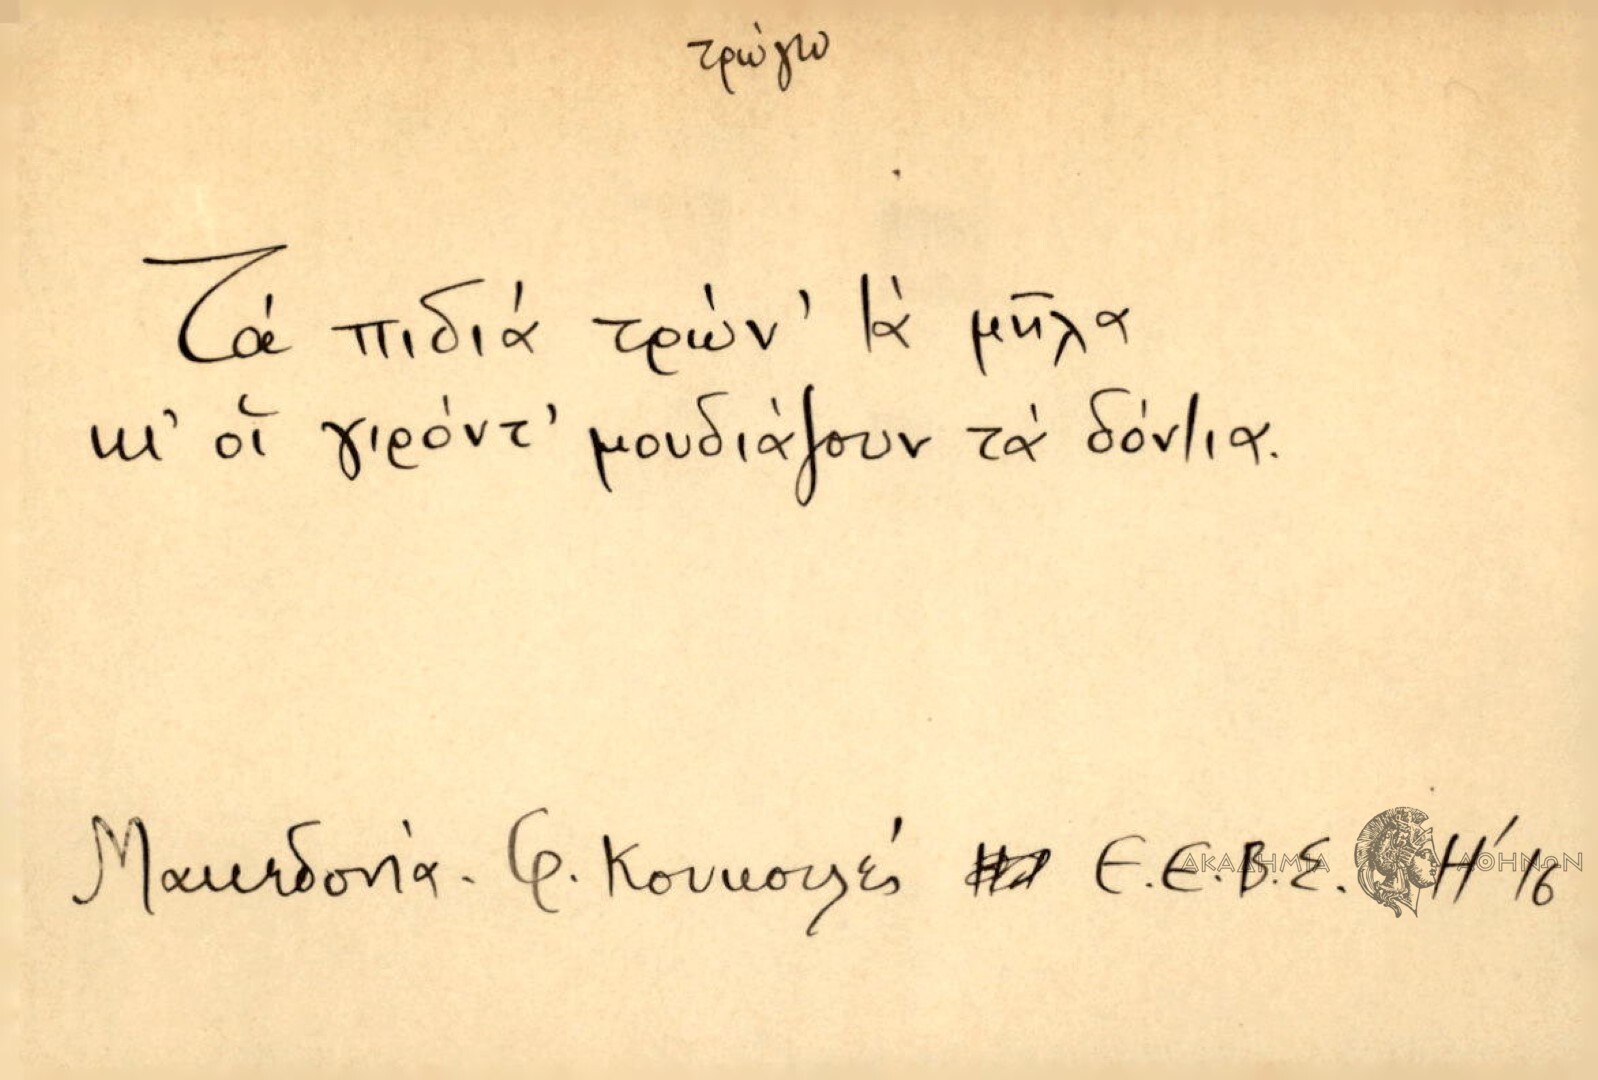 τρώγω
Τά πιδιά τρών' τά μῆλα
κι' οἵ γιρόντ' μουδιάζουν τά δόντια.
Μακεδονία. Φ. Κουκουλές Ε.Ε.Β.Ε. Η' 16
ΑΚΑΔΗΜΙΑ ΑΘΗΝΩΝ